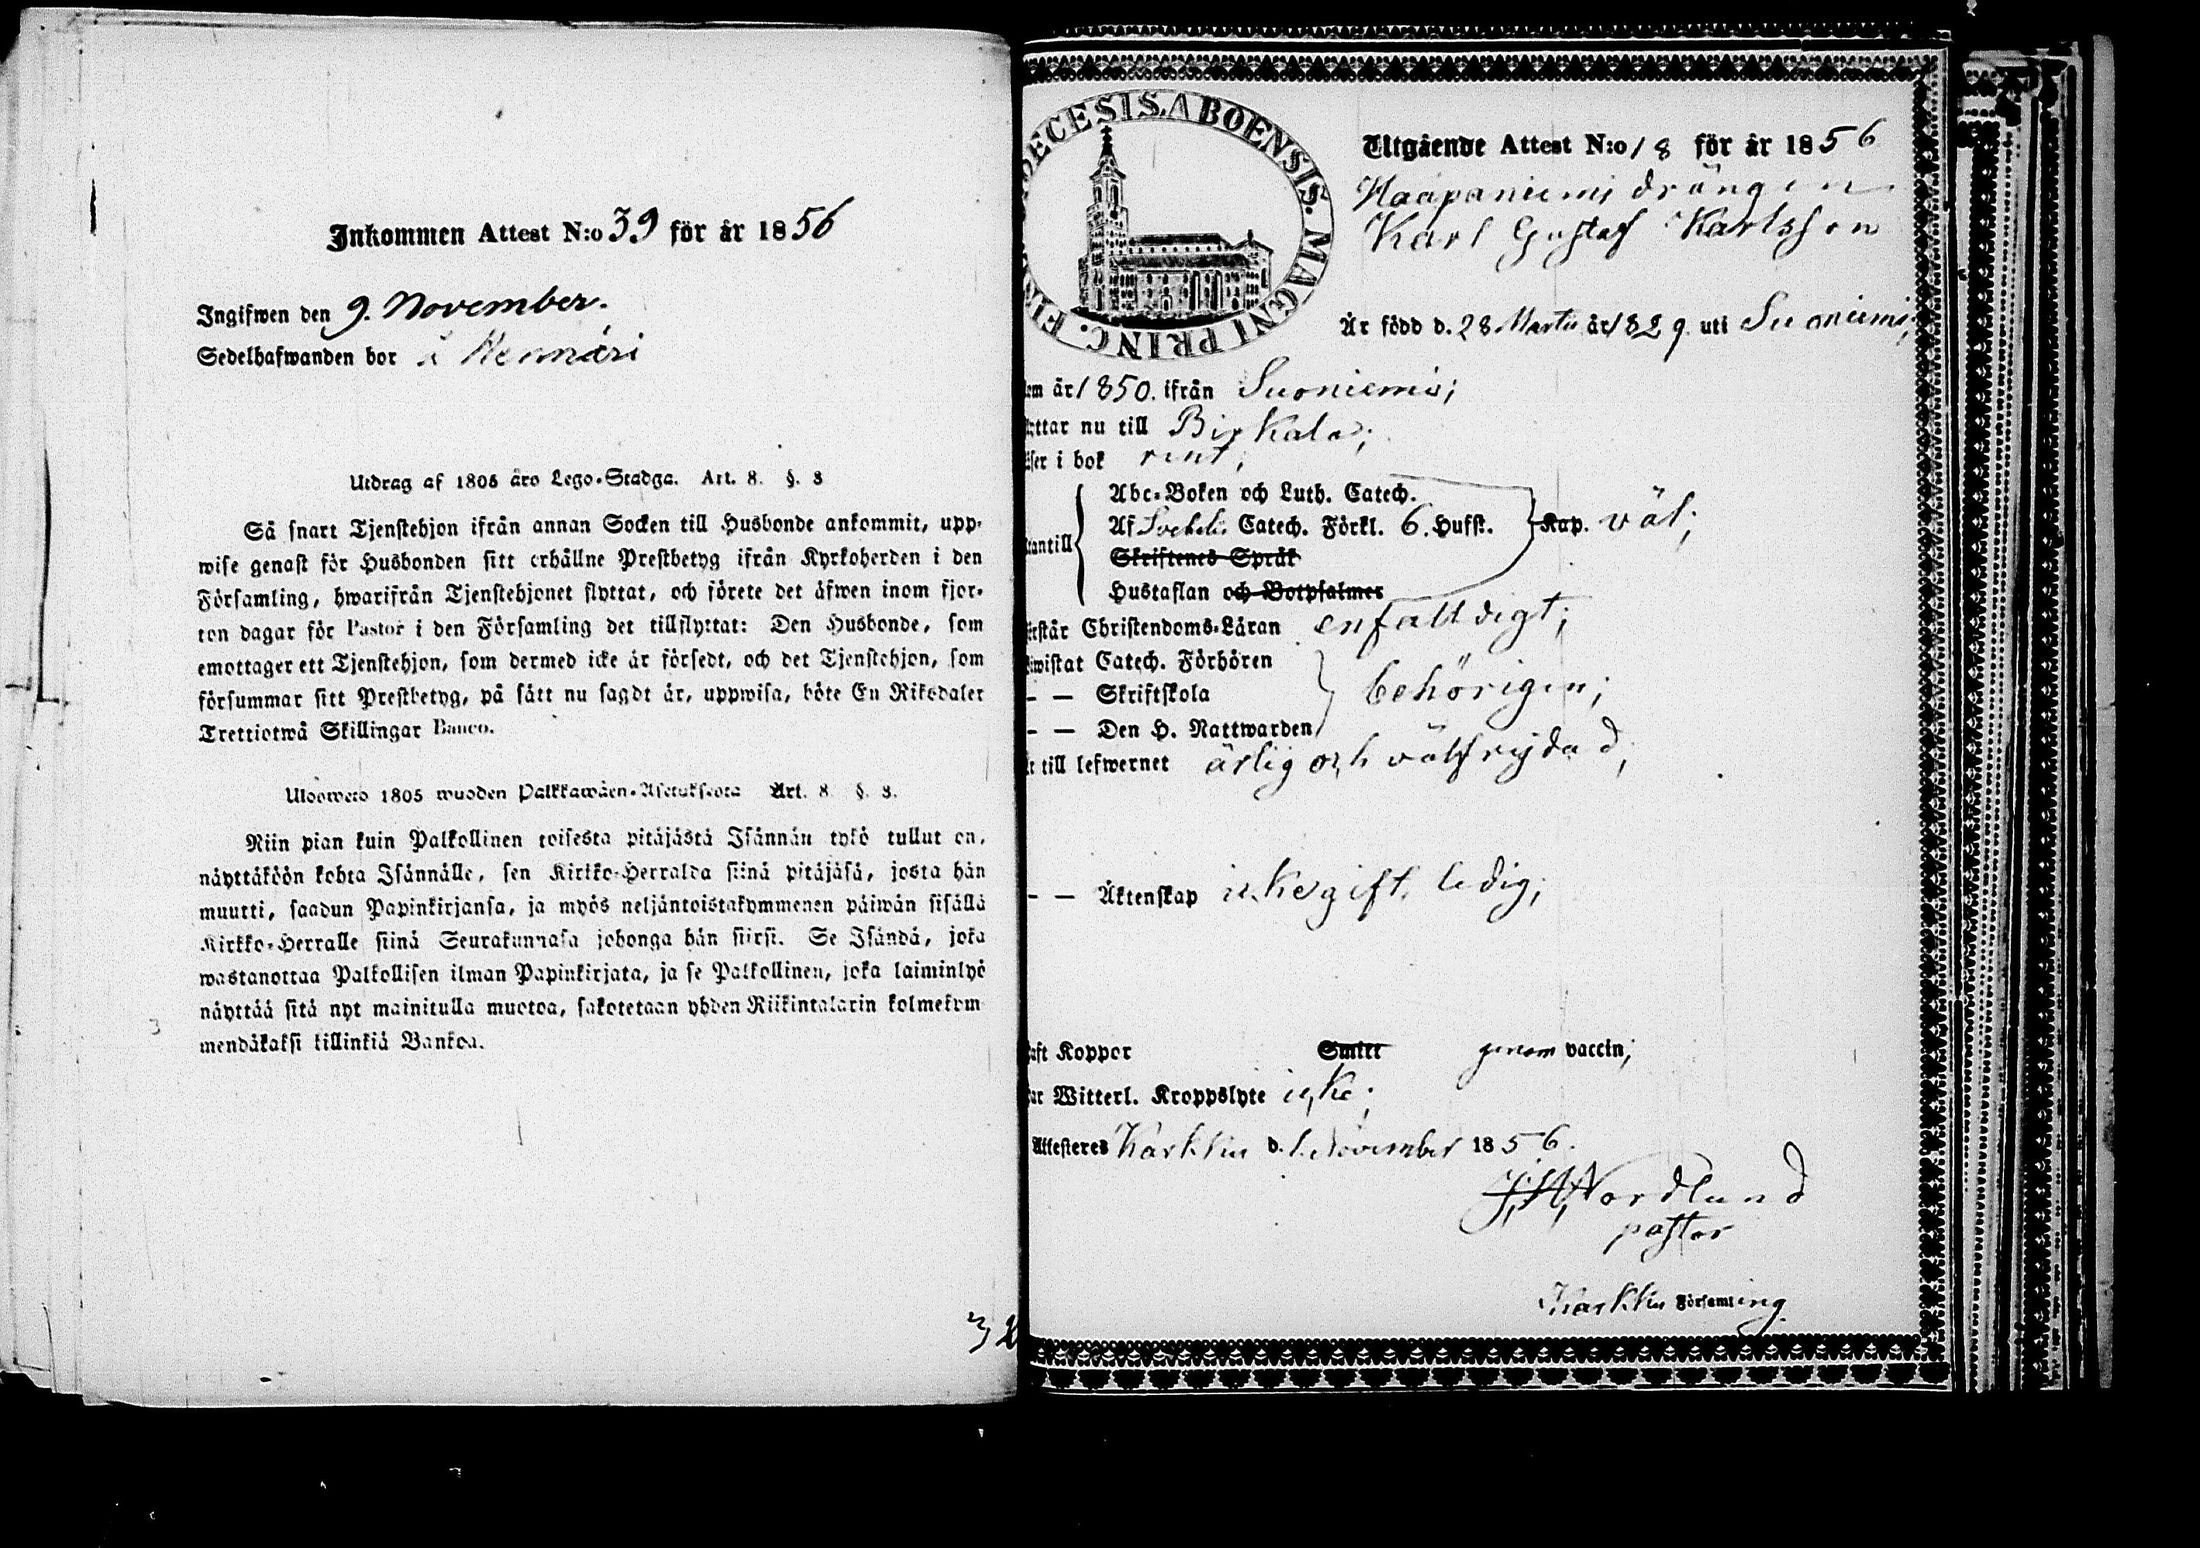 Inkommen Attest N:o 39 för år 1856
Ingifwen den 9. November.
Sedelhafwanden bor i Kennäri
Utdrag af 1805 års Lego-Stadga. Art. 8. §. 8
Så snart Tjenstehjon ifrån annan Socken till Husbonde ankommit, upp-
wise genast för Husbonden sitt erhållne Prestbetyg ifrån Kyrkoherden i den
Församling, hwarifrån Tjenstehjonet flyttat, och förete det äfwen inom fjor-
ton dagar för Pastor i den Församling det tillflyttat: Den Husbonde, som
emottager ett Tjenstehjon, som dermed icke är försedt, och det Tjenstehjon, som
försummar sitt Prestbetyg, på sätt nu sagdt är, uppwisa, böte En Riksdaler
Trettiotwå Skillingar Banco.
Ulosweto 1805 wuoden Palkkawäen-Asetuksesta Art. 8 §. 8.
Niin pian kuin Palkollinen toisesta pitäjästä Isännän tykö tullut on,
näyttäköön kohta Isännälle, sen Kirkko-Herralda siinä pitäjäsä, josta hän
muutti, saadun Papinkirjansa, ja myös neljäntoistakymmenen päiwän sisällä
Kirkko-Herralle siinä Seurakunnasa johonga hän siirsi. Se Isändä, joka
wastanottaa Palkollisen ilman Papinkirjata, ja se Palkollinen, joka laiminlyö
näyttää sitä nyt mainitulla muotoa, sakotetaan yhden Riikintalarin kolmekym
mendäkaksi killinkiä Bankoa.
ECESIS. ABOENSIS. MAGNI PRINC. FIN
Utgående Attest N:o 18 för år 1856
Haapaniemi drängen
Karl Gustaf Karlsson
Är född d. 28 Martii år 1829. uti Suoniemi;
om år 1850. ifrån Suoniemi;
yttar nu till Birkala;
äser i bok rent;
Abc-Boken och Luth. Catech.
Af Svebeli: Catech. Förkl. 6. Hufst. Kap. väl;
utantill
Skriftenes Språk
Hustaflan och Botpsalmer
örstår Christendoms-Läran enfalldigt;
iwistat Catech. Förhören
— — Skriftskola behörigen;
— — Den H. Nattwarden
är till lefwernet ärlig och välfrejdad;
— — Äktenskap icke gift, ledig;
aft Koppor Smitt genom vaccin;
ar Witterl. Kroppslyte icke;
Attesteres Karkku d. 1. November 1856.
Nordlund
pastor
Karkku Församling.